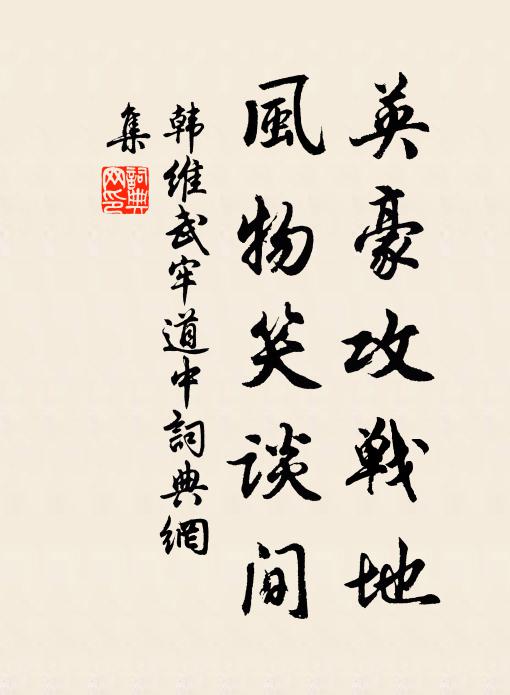 英豪攻戦地
風物笑談间
韩维武牢道中詞典網
集
詞典
网印